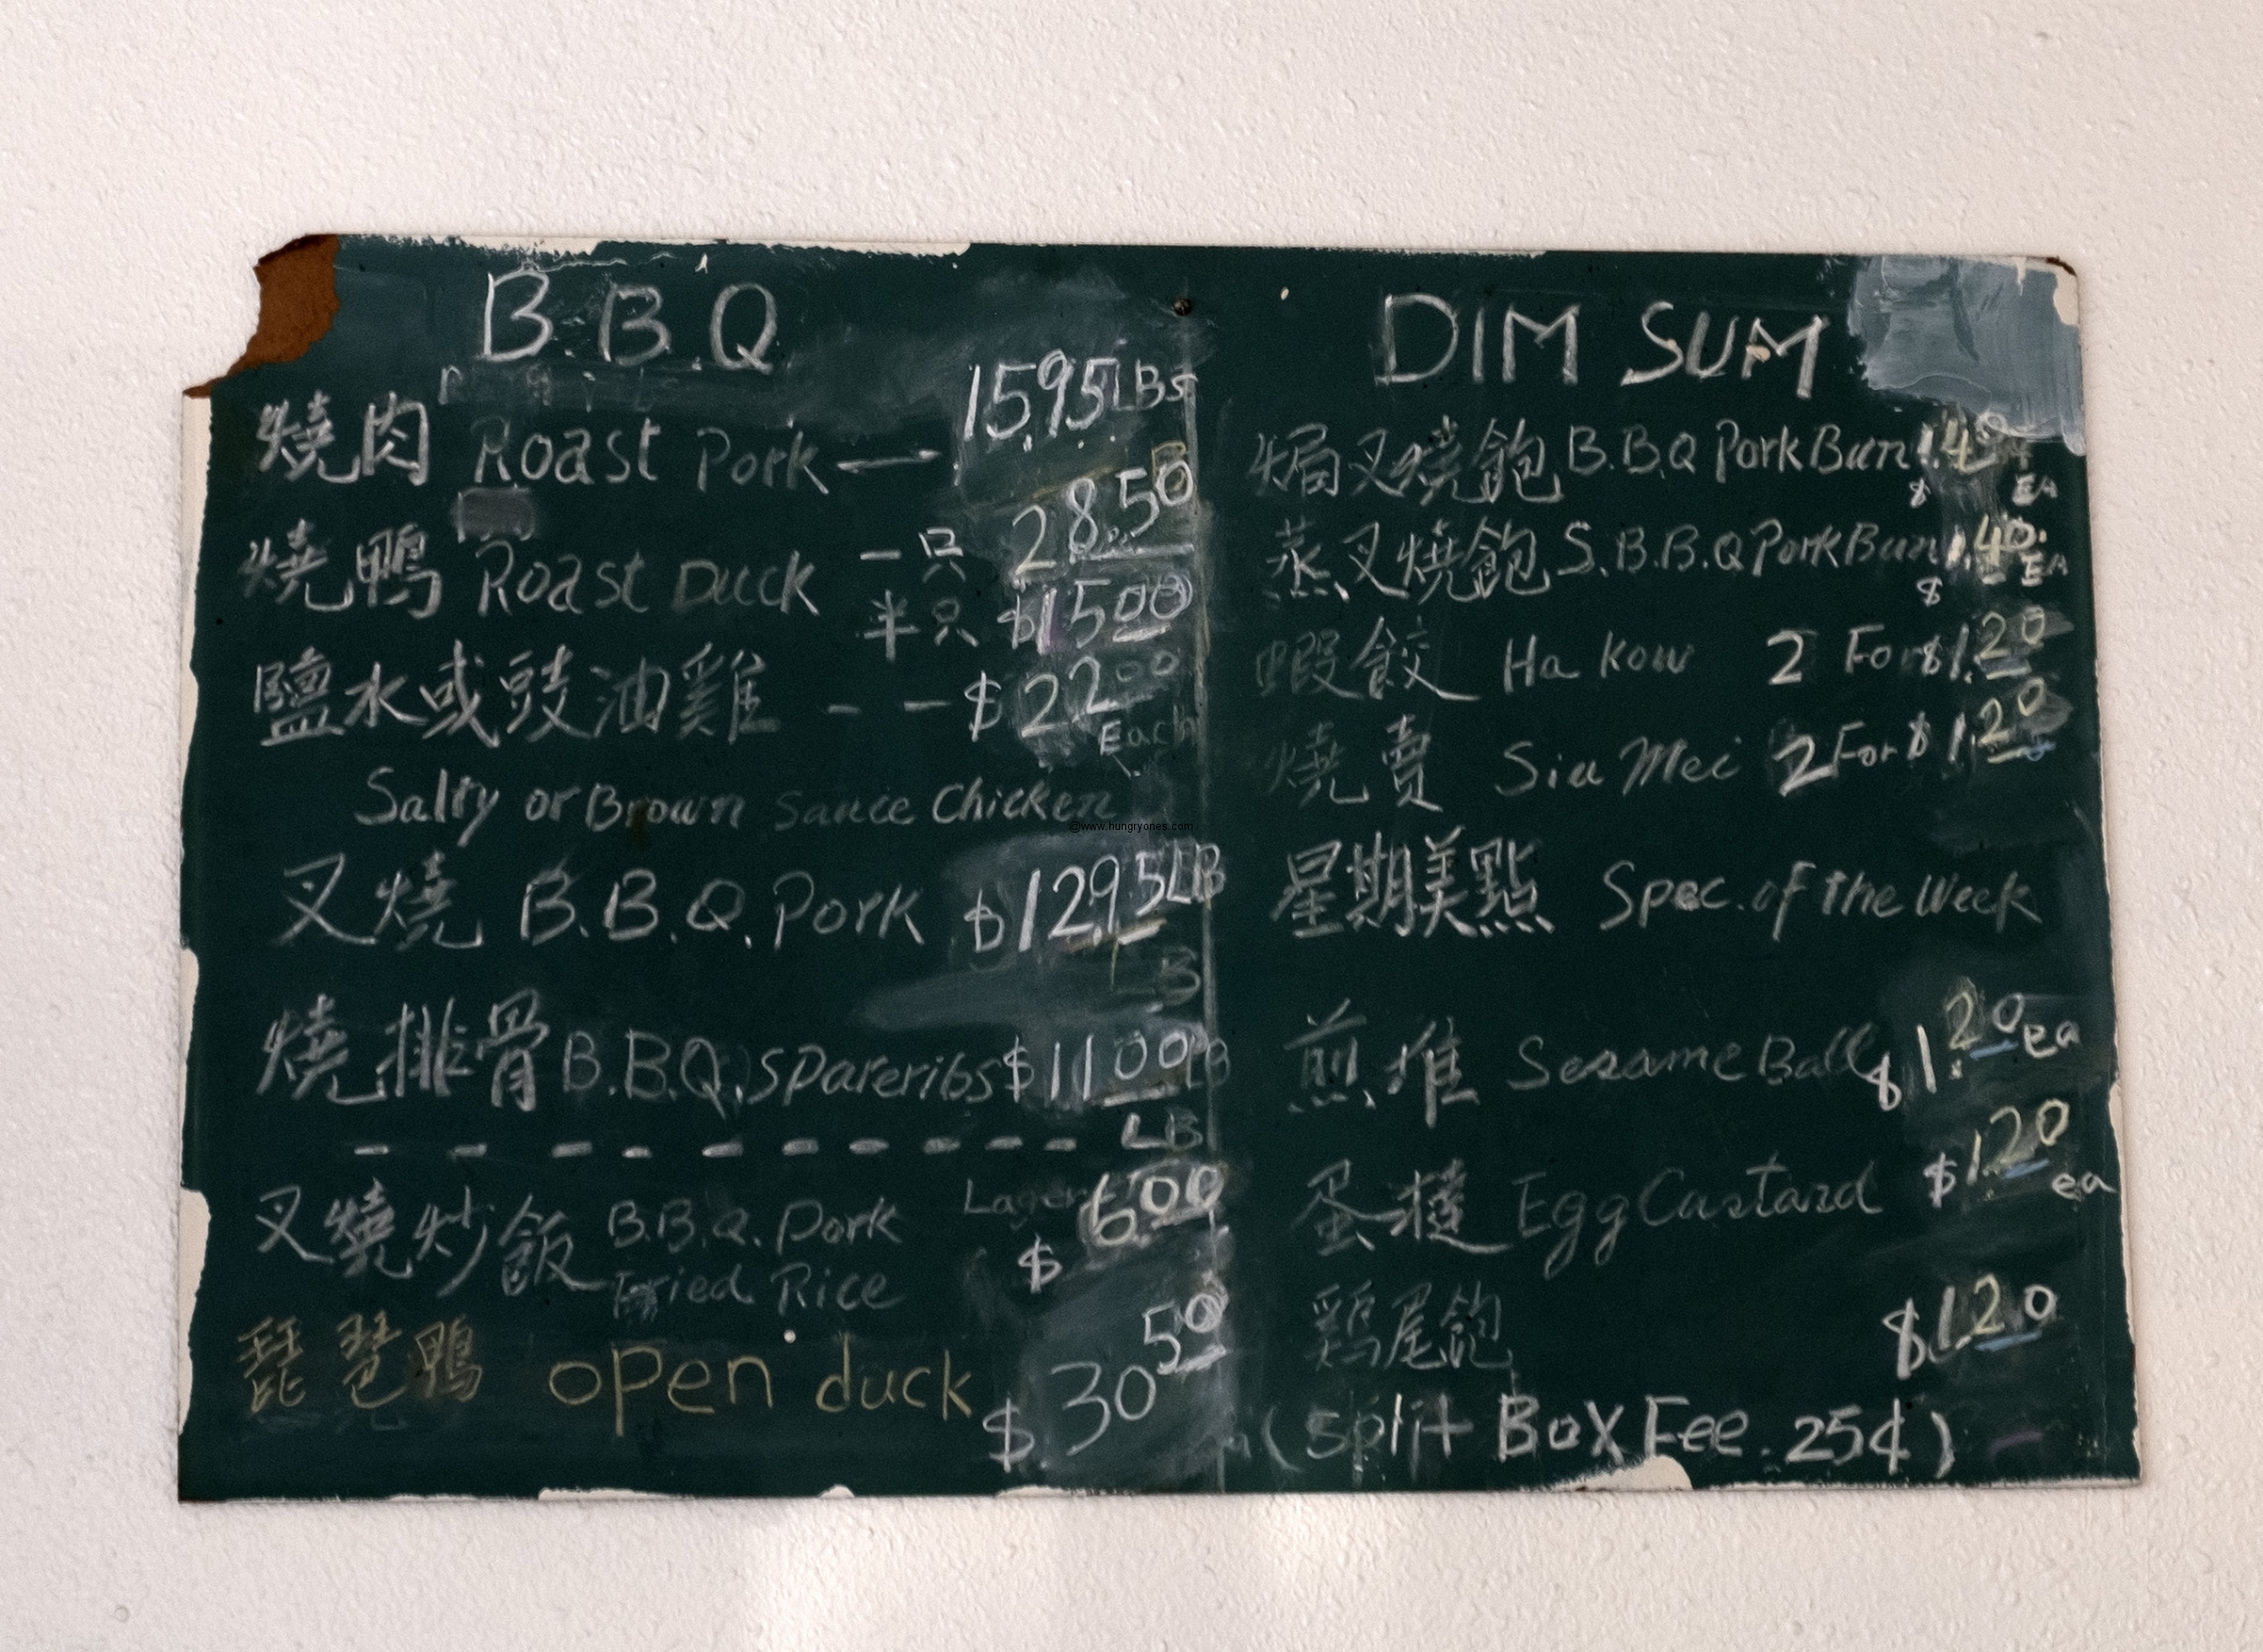 B.B.Q
燒肉 Roast Pork 15.95 LBs
燒鴨 Roast Duck 一只 28.50
半只 $15.00
鹽水或豉油雞 -- $22.00
Each
Salty or Brown Sauce Chicken
©www.hungryones.com
叉燒 B.B.Q. Pork $12.95 LB
燒排骨 B.B.Q. Spareribs $11.00 LB
LB
叉燒炒飯 B.B.Q. Pork Lager $6.00
Fried Rice
琵琶鴨 open duck $30.50
DIM SUM
焗叉燒飽 B.B.Q Pork Bun $1.40 EA
蒸叉燒飽 S.B.B.Q Pork Bun $1.40 EA
蝦餃 Ha Kow 2 For $1.20
燒賣 Siu Mei 2 For $1.20
星期美點 Spec. of the Week
煎堆 Sesame Ball $1.20 ea
蛋撻 Egg Custard $1.20 ea
鷄尾飽 $1.20
(Split Box Fee. 25¢)